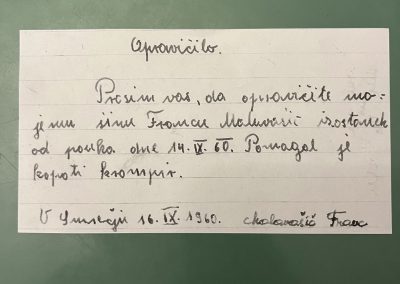 Opravičilo.
Prosim vas, da opravičite mo-
jemu sinu Francu Malavašič izostanek
od pouka dne 14. IX. 60. Pomagal je
kopati krompir.
V Smrečju 16. IX. 1960. Malavašič Franc